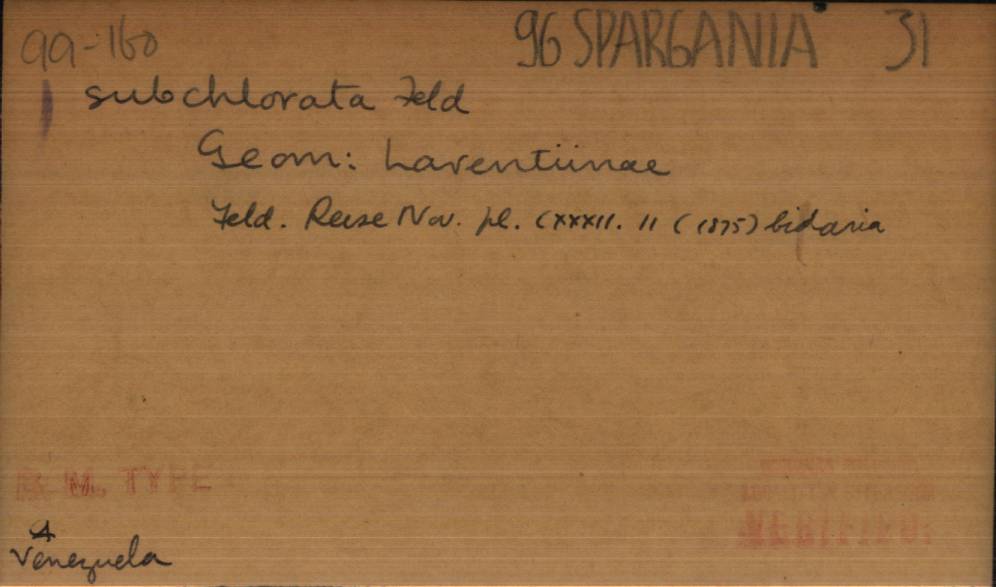 99-160 96 SPARGANIA 31
subchlorata Feld
Geom: Larentiinae
Feld. Reise Nov. pl. CXXXII. 11 (1875) bidaria
B. M. TYPE
VERIFIED:
Venezuela